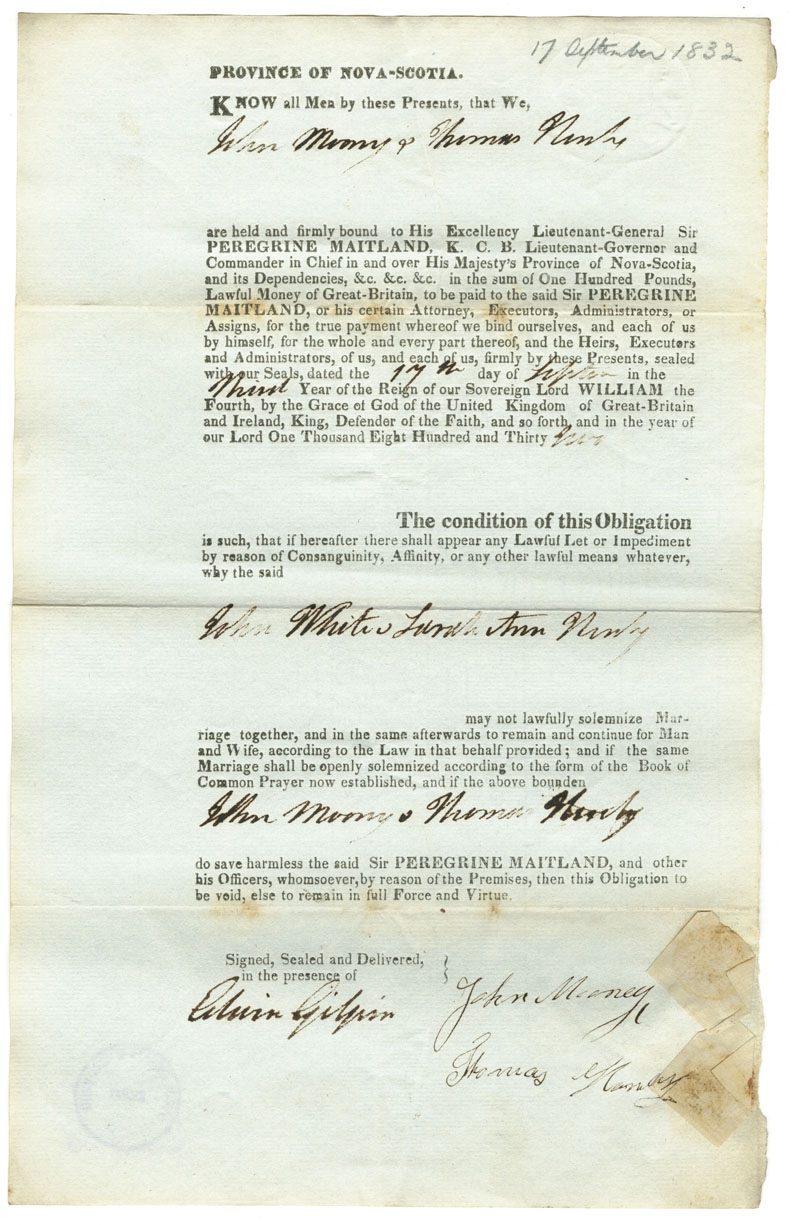 17 September 1832
PROVINCE OF NOVA-SCOTIA.
KNOW all Men by these Presents, that We,
John Moony & Thomas
are held and firmly bound to His Excellency Lieutenant-General Sir
PEREGRINE MAITLAND, K. C. B. Lieutenant-Governor and
Commander in Chief in and over His Majesty's Province of Nova-Scotia,
and its Dependencies, &c. &c. &c. in the sum of One Hundred Pounds,
Lawful Money of Great-Britain, to be paid to the said Sir PEREGRINE
MAITLAND, or his certain Attorney, Executors, Administrators, or
Assigns, for the true payment whereof we bind ourselves, and each of us
by himself, for the whole and every part thereof, and the Heirs, Executors
and Administrators, of us, and each of us, firmly by these Presents, sealed
with our Seals, dated the 17th day of Septem in the
Third Year of the Reign of our Sovereign Lord WILLIAM the
Fourth, by the Grace of God of the United Kingdom of Great-Britain
and Ireland, King, Defender of the Faith, and so forth, and in the year of
our Lord One Thousand Eight Hundred and Thirty two
The condition of this Obligation
is such, that if hereafter there shall appear any Lawful Let or Impediment
by reason of Consanguinity, Affinity, or any other lawful means whatever,
why the said
John White & Sarah Ann
may not lawfully solemnize Mar-
riage together, and in the same afterwards to remain and continue for Man
and Wife, according to the Law in that behalf provided; and if the same
Marriage shall be openly solemnized according to the form of the Book of
Common Prayer now established, and if the above bounden
John Moony & Thomas
do save harmless the said Sir PEREGRINE MAITLAND, and other
his Officers, whomsoever, by reason of the Premises, then this Obligation to
be void, else to remain in full Force and Virtue.
Signed, Sealed and Delivered,
in the presence of
Edwin Gilpin
John Mooney
Thomas